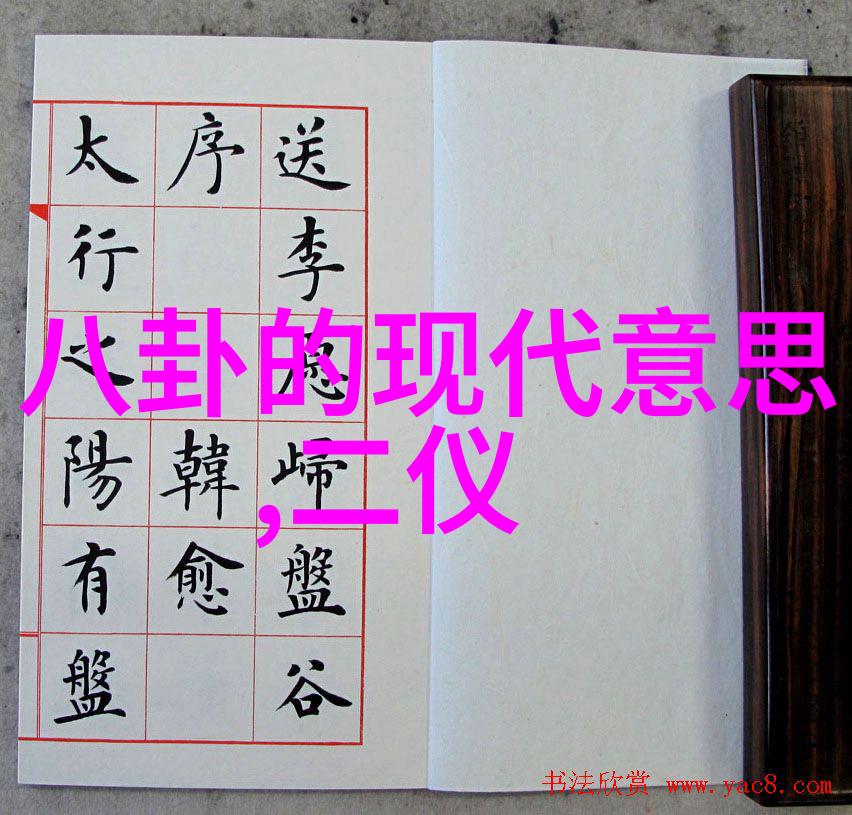 送李愿歸盤谷
序 韓愈
太行之陽有盤
八卦的现代意思
,二仪
书法欣赏 www.yac8.com